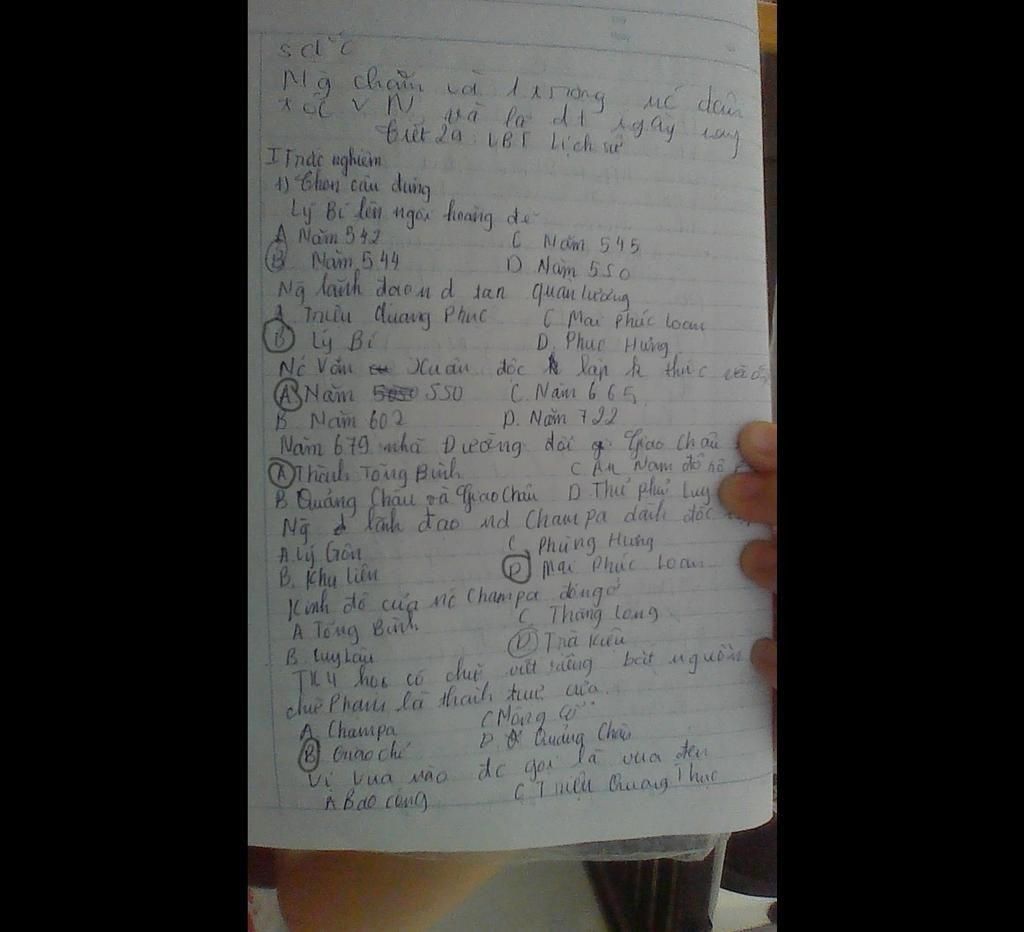 sắc
Ng chăm và 1 trong nc dân
tộc VN và là d1 ngày nay
Tiết 29: LBT Lịch sử
I Trắc nghiệm
1) Chọn câu đúng
Lý Bí lên ngôi hoàng đế
A Năm 542 C Năm 545
B Năm 544 D Năm 550
Ng lãnh đạo nd tan quân lương
A. Triệu Quang Phục C Mai Phúc Loan
B Lý Bí D. Phục Hưng
Nc Vạn Xuân độc lập k thúc
A Năm 550 C. Năm 665
B Năm 602 D. Năm 722
Năm 679 nhà Dường đổi Giao Châu
A Thành Tống Bình C An Nam đô hộ
B Quảng Châu và Giao Châu D. Thứ phủ Luy
Ng lãnh đạo nd Champa dành độc
A. Lý Gôn C. Phùng Hưng
B. Khu Liên D Mai Phúc Loan
Kinh đô của nc Champa đóng ở
A Tống Bình C. Thăng Long
B. Luy Lâu D Trà Kiệu
TK4 học có chữ viết riêng bắt nguồn
chữ Phạn là thành tựu của
A. Champa C Mông Cổ
B Giao chỉ D. Quảng Châu
Vị vua nào đc gọi là vua đen
A Bảo công C Triệu Quang Thục